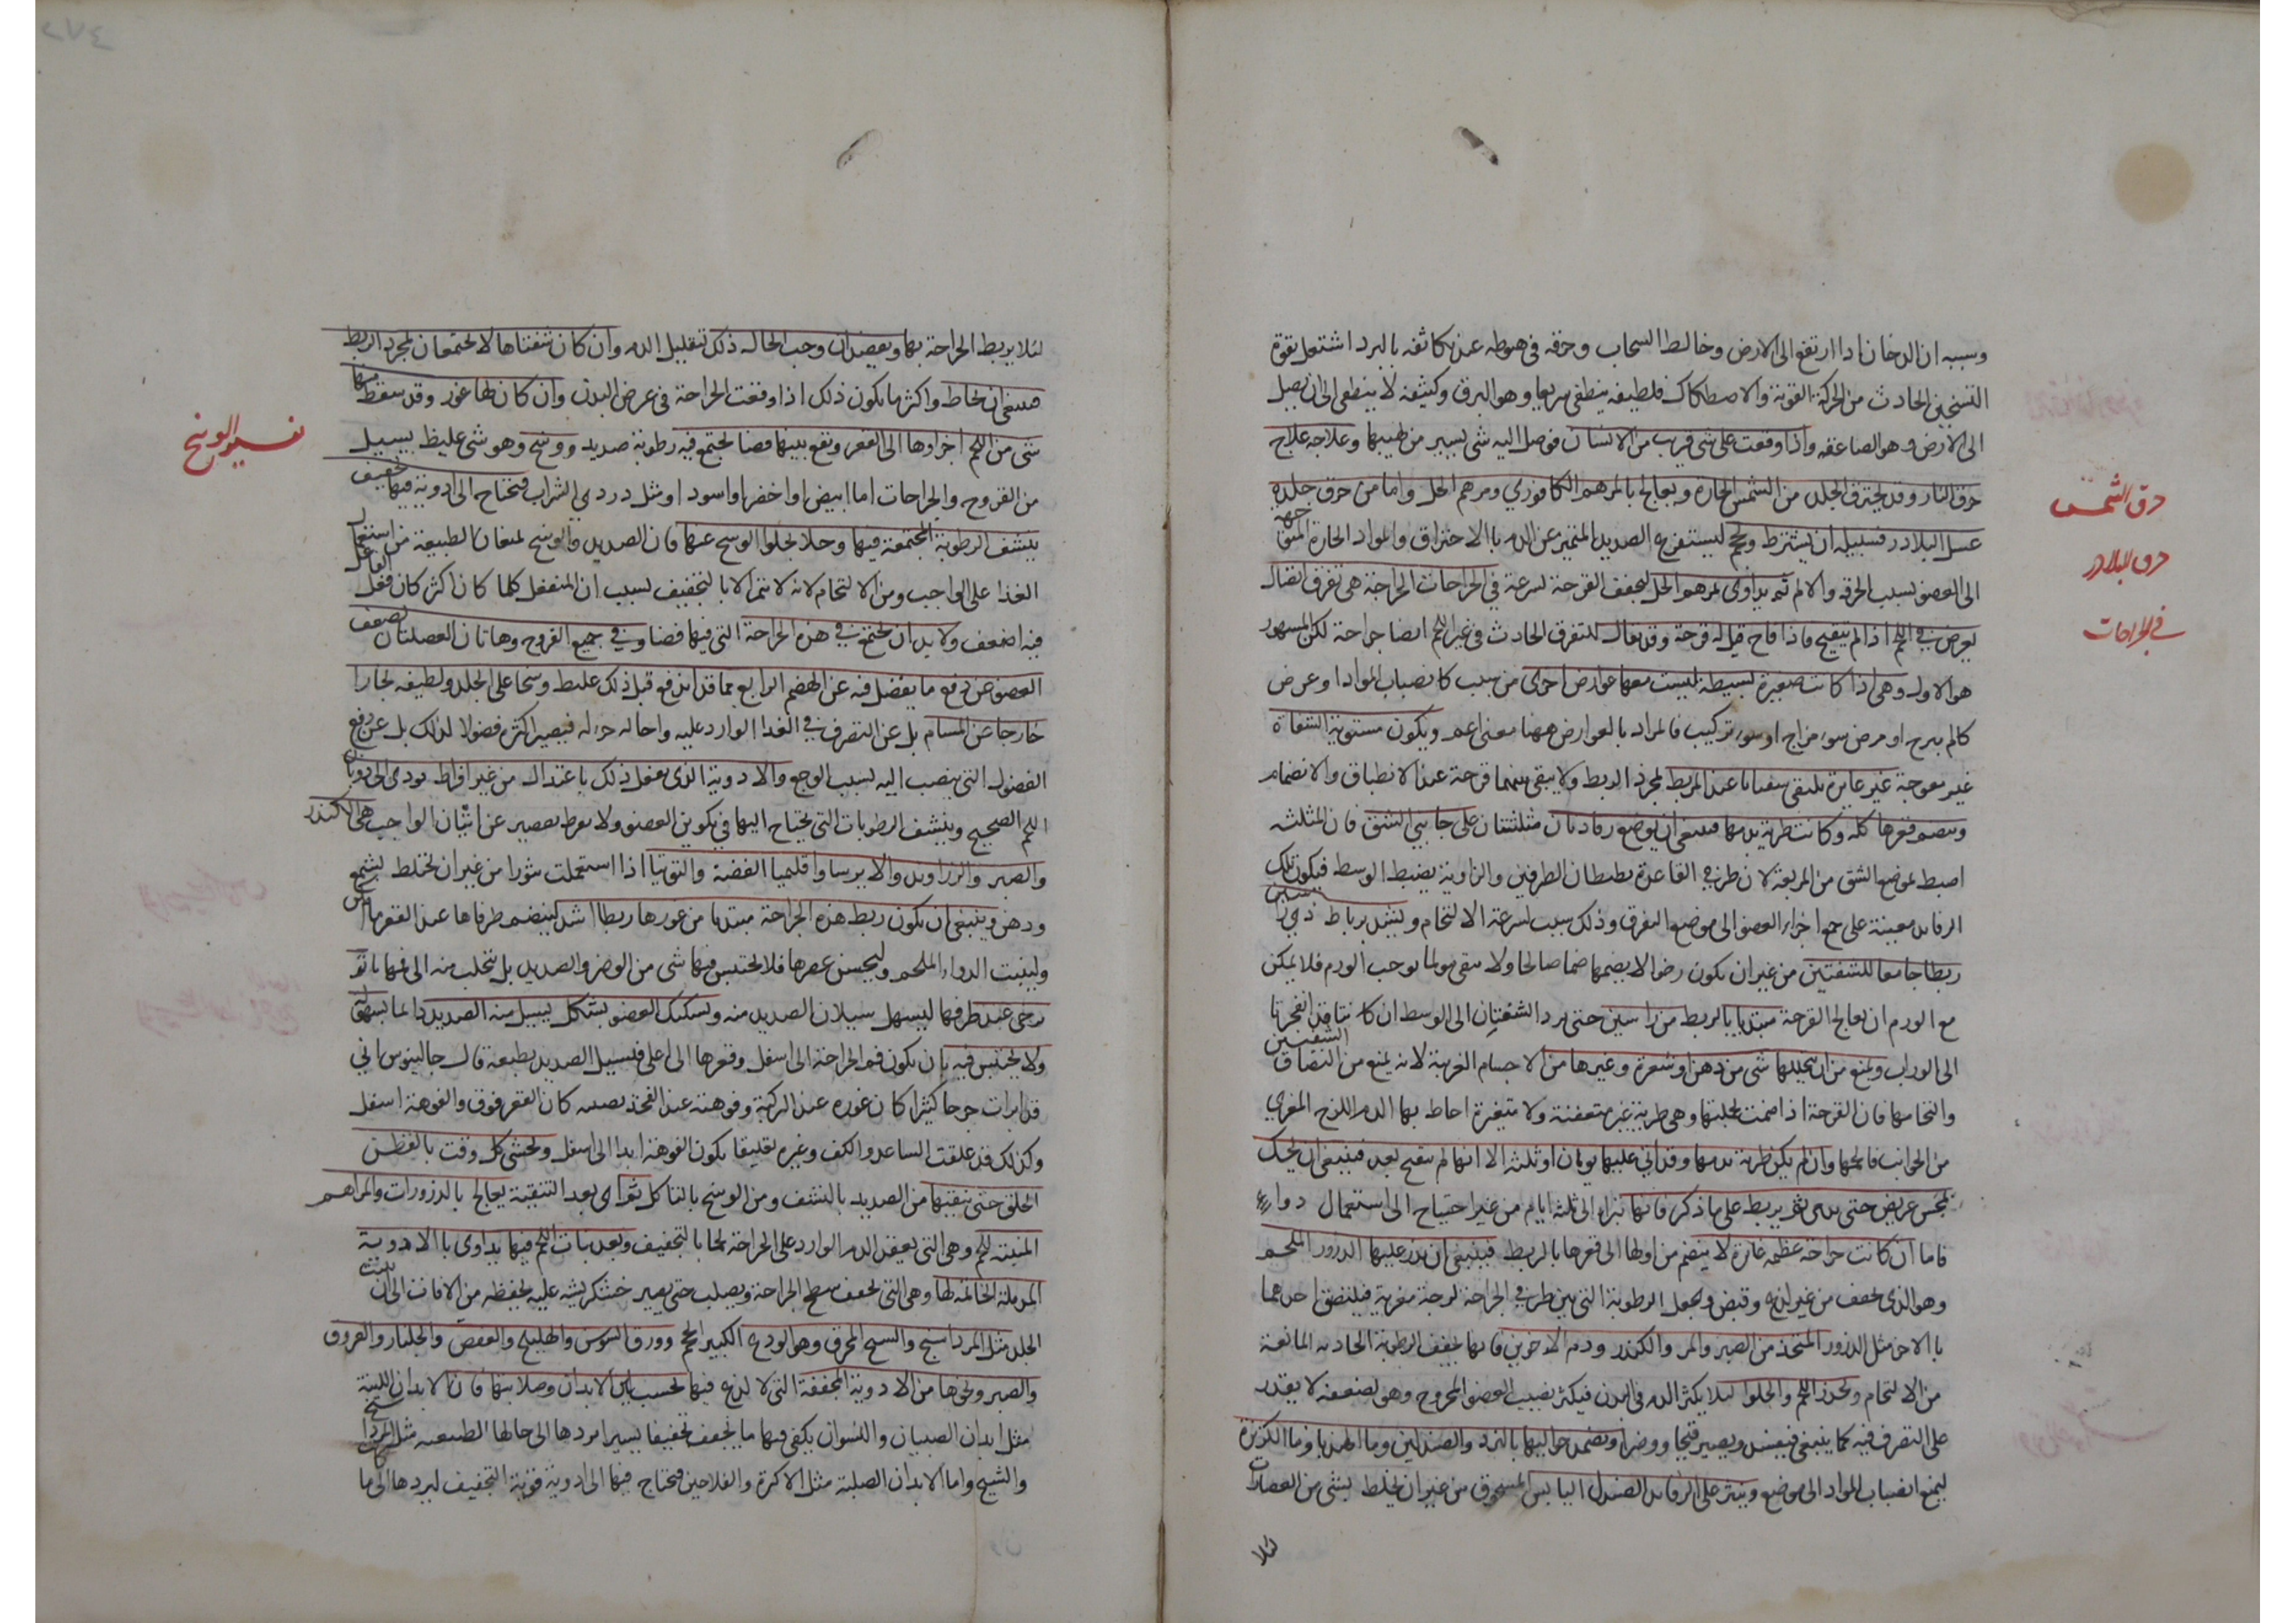 وسببه ان الدخان اذا ارتفع الى الارض وخالط السحاب وحرقه في هبوطه عند تكاثفه بالبرد اشتعل بقوة
التسخين الحادث من الحركة القوية والاصطكاك فلطيفه ينطفي سريعا وهو البرق وكثيفه لا ينطفي الى ان يصل
الى الارض وهو الصاعقه واذا وقعت على شي قريب من الانسان فوصل اليه شي يسير من لهيبها وعلاجه علاج
حرق النار وقد يحترق الجلد من الشمس الحارة ويعالج بالمرهم الكافوري ومرهم الخل واما من حرق جلده
حرق الشمس
عسل البلادر فسبيله ان يشترط ويحجم ليستفرغ الصديد المتميز عن الدم بالاحتراق والمواد الحارة
حرق البلادر
الى العضو بسبب الحرقه والالم ثم يداوى بمرهم الخل ليجفف القرحة بسرعة في الجراحات الجراحة هي تفرق اتصال
في الجراحات
يعرض في اللحم اذا لم يتقيح فاذا قاح قيل له قرحة وقد يقال للتفرق الحادث في غير اللحم ايضا جراحة لكن المشهور
هو الاول وهي اذا كانت صغيرة بسيطة ليست معها عوارض اخرى من سبب كانصباب المواد او عرض
كالم مبرح او مرض سوء مزاج او سوء تركيب فالمراد بالعوارض ههنا معنى اعم ويكون مستوية الشفاة
غير معوجة غير غايرة يلتقي شفتاها عند الربط بمجرد الربط ولا يبقى بينهما فرجة عند الانطباق والانضمام
وينضم قعرها كله وكانت طرية بدمها فينبغي ان يوضع رفادتان مثلثتان على جانبي الشق فان المثلثه
اضبط لموضع الشق من المربعة لان طرفي القاعدة يضبطان الطرفين والزاوية يضبط الوسط فيكون تلك
الرفايد معينة على جمع اجزاء العضو الى موضع التفرق وذلك سبب لسرعة الالتحام ويشد برباط ذي راسين
ربطا جامعا للشفتين من غير ان يكون رخوا لا يضمها ضما صالحا ولا موجب الورم فلا يمكن
مع الورم ان يعالج القرحة مبتديا بالربط من راسين حتى يرد الشفتان الى الوسط ان كانتا قد انفجرتا
الى الوراب ويمنع من ان يتخللها شي من دهن او شعرة وغيرها من الاجسام الغريبة لانه يمنع من التصاق الشفتين
والتحامها فان القرحة اذا ضمت بجلبتها وهي طرية غير متعفنة ولا متغيرة احاط بها الدم اللزج المغري
من الجوانب فالحمها وان لم يكن طرية بدمها وقد اتى عليها يومان او ثلثه الا انها لم تتقيح بعد فينبغي ان يحك
بمجس عريض حتى يدمى ثم يربط على ما ذكر فانها تبرا الى ثلثة ايام من غير احتياج الى استعمال دواء
فاما ان كانت جراحة عظيمه غايرة لا ينضم من اولها الى قعرها بالربط فينبغي ان يذر عليها الذرور الملحم
وهو الذي يجفف من غير لذع وقبض ويجعل الرطوبة التي بين طرفي الجراحة لزجة مغرية فيلتصق احدهما
بالاخر مثل الذرور المتخذ من الصبر والمر والكندر ودم الاخوين فانها يجفف الرطوبة الحادثه المانعة
من الالتحام ويحذر اللحم والحلوا ليلا يكثر الدم في البدن فيكثر نصيب العضو المجروح وهو لضعفه لا يقدر
على التصرف فيه كما ينبغي فيفسد ويصير قيحا ووضرا ويضمد حواليها بالورد والصندلين وما الهندبا وما الكزبرة
ليمنع انصباب المواد الى موضع وينثر على الرفايد الصندل اليابس المسحوق من غير ان يخلط بشي من العصارات
لئلا
لئلا يربط الجراحة بها ويفصد ان وجب الحاله ذلك لتقليل الدم وان كان شفتاها لا يجتمعان بمجرد الربط
فينبغي ان يخاط واكثر ما يكون ذلك اذا وقعت الجراحة في عرض البدن وان كان لها غور وقد سقط منها
شي من اللحم اجزاوها الى القعر ويقع بينها فضا يجتمع فيه رطوبة صديد ووسخ وهو شي غليظ يسيل
تفسير الوسخ
من القروح والجراحات اما ابيض او اخضر او اسود او مثل دردي الشراب فيحتاج الى ادوية فيها تجفيف
ينشف الرطوبة المجتمعة فيها وجلا يجلوا الوسخ عنها فان الصديد والوسخ يمنعان الطبيعة من استعمال
الغذا على الواجب ومن الالتحام لانه لا يتم الا بالتجفيف بسبب ان المنفعل كلما كان اكثر كان فعل الفاعل
فيه اضعف ولا بد ان يجتمع في هذه الجراحة التي فيها فضا وفي جميع القروح وهاتان الفضلتان لضعف
العضو عن دفع ما يفضل فيه عن الهضم الرابع مما قد اندفع قبل ذلك غليظه وسخا على الجلد ولطيفه بخارا
خارجا عن المسام بل عن التصرف في الغذا الوارد عليه واحاله جزءه فيصير اكثره فضولا لذلك بل عن دفع
الفضول التي ينصب اليه بسبب الوجع والادوية الذي يفعل ذلك باعتدال من غير افراط يودي الى ذوبان
اللحم الصحيح وينشف الرطوبات التي يحتاج اليها في تكوين العضو ولا تفريط تقصير عن اتيان الواجب هي الكندر
والصبر والزراوند والايرسا واقليميا الفضة والتوتيا اذا استعملت نثورا من غير ان يختلط بشمع
ودهن وينبغي ان يكون ربط هذه الجراحة مبتديا من غورها ربطا اشد لينضم طرفاها عند القعر
ولينبت الدواء الملحم وليحسن عصرها فلا يحتبس فيها شي من الوضر والصديد بل يتحلب منه الى فمها بان
يرخى عند طرفها ليسهل سيلان الصديد منه ويشكل العضو بشكل يسيل منه الصديد دايما بسهولة
ولا يحتبس فيه بان يكون فم الجراحة الى اسفل وقعرها الى اعلى فيسيل الصديد بطبعه قال جالينوس اني
قد ابرات جرحا كثيرا كان غوره عند الركبة وفوهته عند الفخذ كان القعر فوق والفوهة اسفل
وكذلك قد علقت الساعد والكف وغيره تعليقا يكون الفوهة ابدا الى اسفل ويحشى كل وقت بالقطن
الخلق حتى ينقيها من الصديد بالنشف ومن الوسخ بالتاكل ثم اي بعد التنقية يعالج بالذرورات والمراهم
المنبتة للحم وهي التي يعقد الدم الوارد على الجراحة لحما بالتجفيف وبعد نبات اللحم فيها يداوى بالادوية
المدملة الخاتمة لها وهي التي يجفف سطح الجراحة ويصلب حتى يصير خشكريشه عليه يحفظه من الافات الى ان ينبت
الجلد مثل المرداسنج والسبج المحرق وهو الودع الكبير الحجم وورق السوسن والهليلج والعفص والجلنار والعروق
والصبر ونحوها من الادوية المجففة التي لا لذع فيها بحسب لين الابدان وصلابتها فان الابدان اللينة
مثل ابدان الصبيان والنسوان يكفي فيها ما يجفف تجفيفا يسيرا يردها الى حالها الطبيعيه مثل المرداسنج
والشيح واما الابدان الصلبة مثل الاكرة والفلاحين فيحتاج فيها الى ادوية قوية التجفيف ليردها الى ما